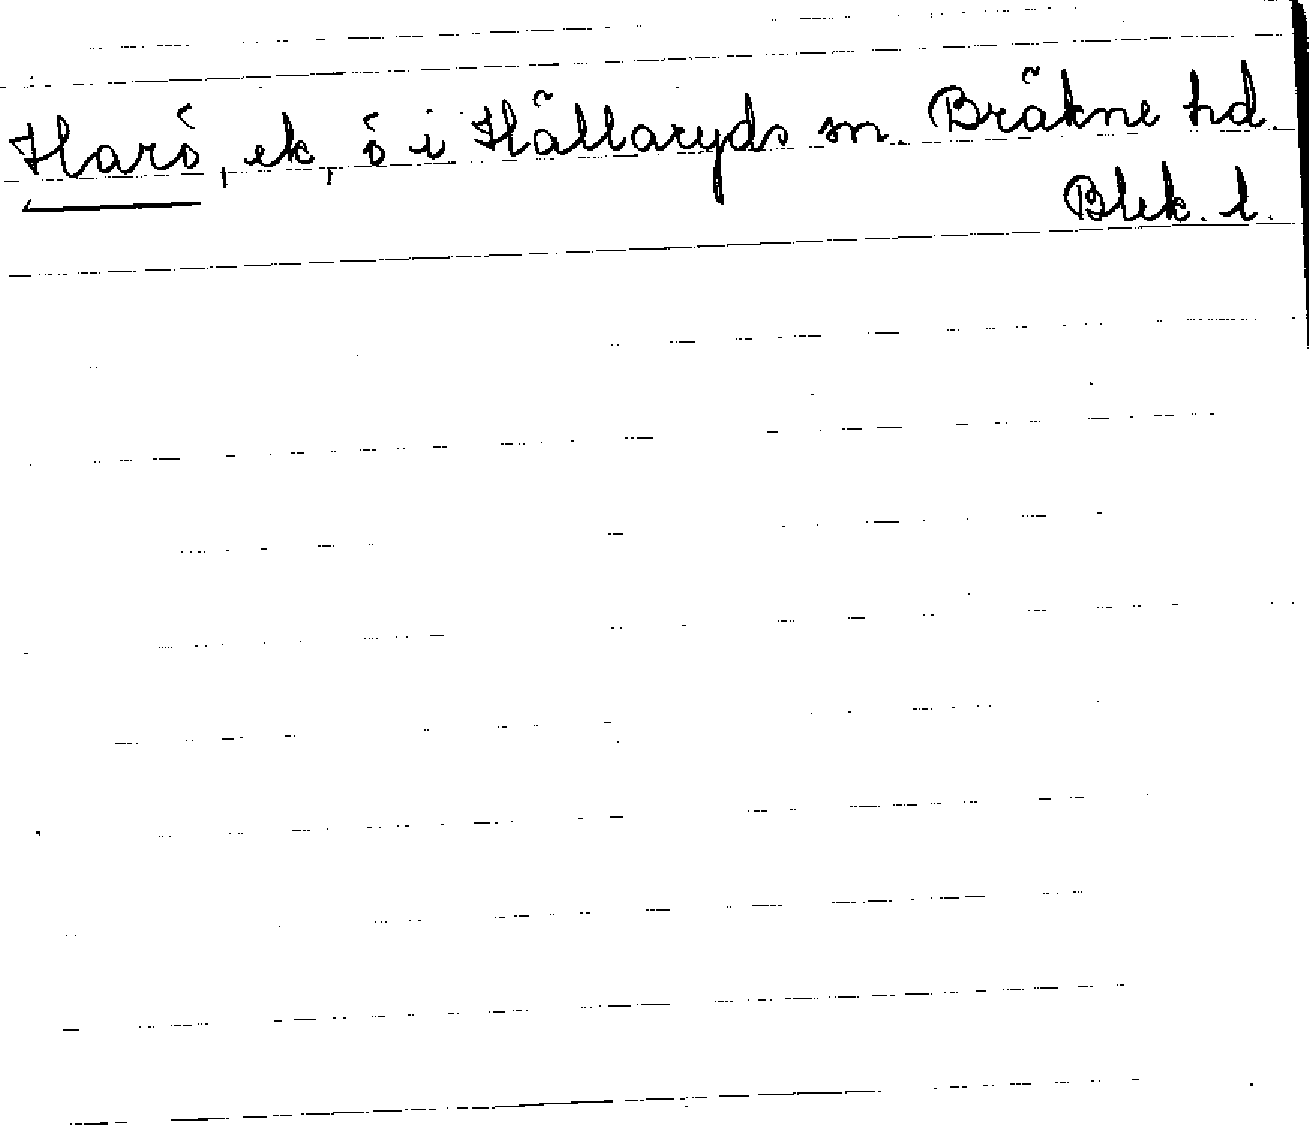 Harö, ek, ö i Hällaryds sn. Bräkne hd.
Blek. l.